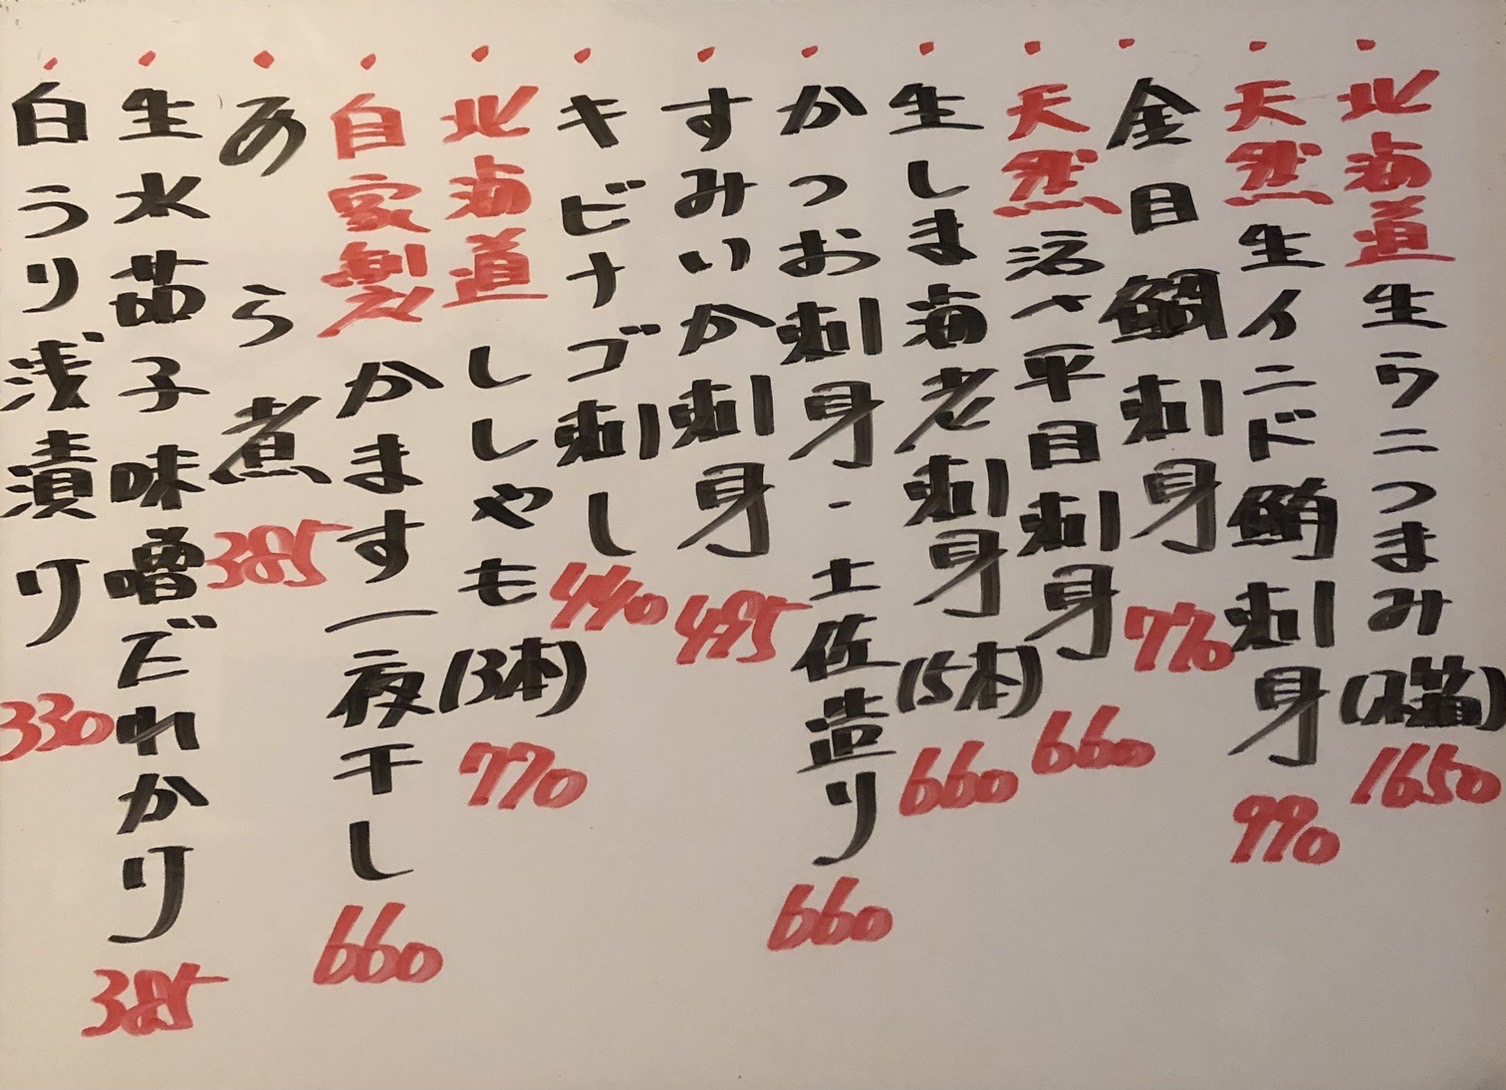 ・北海道生ウニつまみ(1/2箱)1650
・天然生インド鮪刺身990
・金目鯛刺身770
・天然活〆平目刺身660
・生しま海老刺身(5本)660
・かつお刺身・土佐造り660
・すみいか刺身495
・キビナゴ刺し440
・北海道ししゃも(3本)770
・自家製かます一夜干し660
・あら煮385
・生水茄子味噌だれかけ385
・白うり浅漬け330